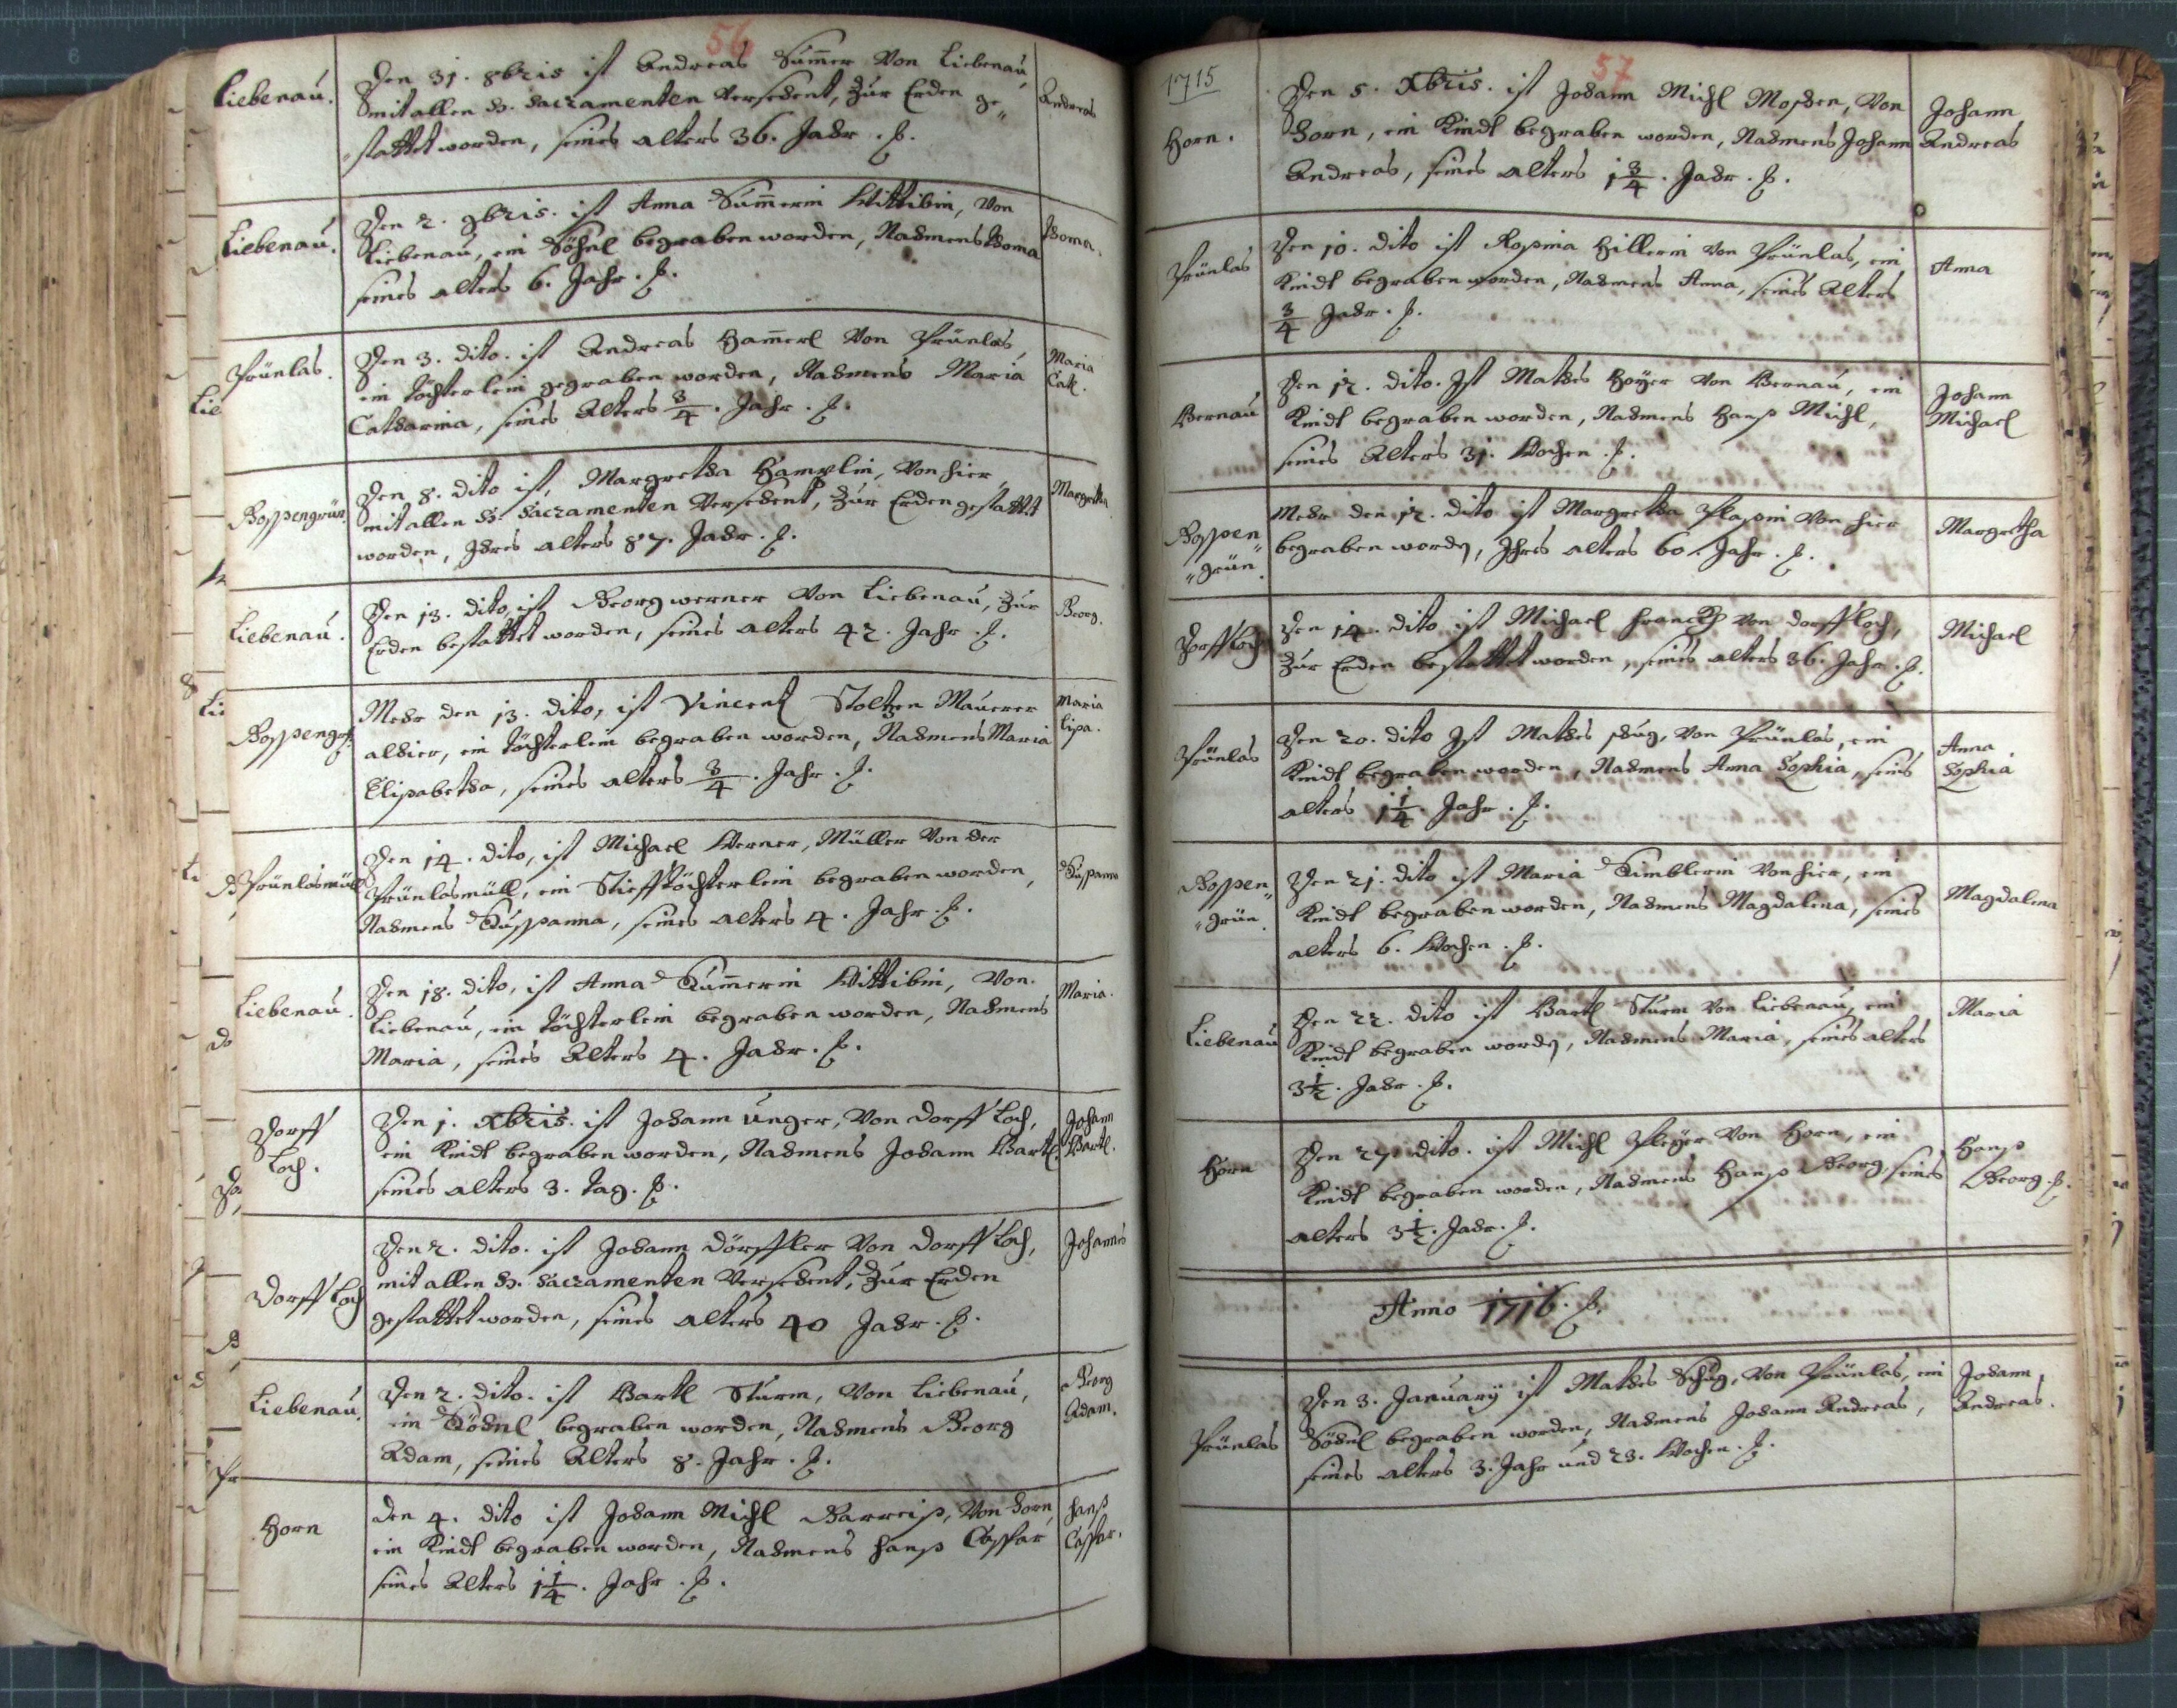 56
Liebenau.
Den 31. 8bris ist Andreas Sum̄er von Liebenau,
mit allen H. Sacramenten versehent, zur Erden ge„
„stattet worden, seines alters 36. Jahr.
Andreas
Liebenau.
Den 2. 9bris. ist Anna Sum̄erin Wittibin, von
Liebenau, ein Söhnl begraben worden, Nahmens Thoma
seines alters 6. Jahr.
Thoma.
Prünlas.
Den 3. dito. ist Andreas Ham̄erl von Prünlas,
ein töchterlein gegraben worden, Nahmens Maria
Catharina, seines Alters 3/4. Jahr.
Maria
Cath.
Boppengrün.
Den 8. dito ist, Margretha, von hier,
mit allen H. Sacramenten versehent, zur Erden gestattet
worden, Ihres alters 87. Jahr.
Margretha
Liebenau.
Den 13. dito, ist Georg werner von Liebenau, zur
Erden bestattet worden, seines alters 42. Jahr.
Georg.
Boppengrß.
Mehr den 13. dito, ist Vincentz Stoltzen Maurer
alhier, ein töchterlein begraben worden, Nahmens Maria
Elisabetha, seines alters 3/4. Jahr.
Maria
lisa.
Prünlasmüll
Den 14. dito, ist Michael Werner, Müller von der
Prünlasmüll, ein Stiefftöchterlein begraben worden,
Nahmens Sussanna, seines alters 4. Jahr.
Sussanna
Liebenau.
Den 18. dito, ist Anna Sum̄erin Wittibin, von
Liebenau, ein töchterlein begraben worden, Nahmens
Maria, seines Alters 4. Jahr.
Maria.
Dorff
Loh.
Den 1. Xbris. ist Johann Unger, von Dorff Loh,
ein Kindt begraben worden, Nahmens Johann Bartl.
seines alters 3. tag.
Johann
Bartl.
Dorff Loh
Den 2. dito. ist Johann Dörffler von Dorff Loh,
mit allen H. Sacramenten versehent, zur Erden
gestattet worden, seines alters 40 Jahr.
Johannes
Liebenau.
Den 2. dito. ist Bartl Sturm, von Liebenau,
ein Söhnl begraben worden, Nahmens Georg
Adam, seines Alters 8. Jahr.
Georg
Adam.
Horn
Den 4. dito ist Johann Michl Barreiß, von Horn,
ein Kindt begraben worden, Nahmens Hanß Casspar
seines Alters 1 1/4. Jahr.
Hanß
Casspar.
57
1715
Horn.
Den 5. Xbris. ist Johann Michl, von
Horn, ein Kindt begraben worden, Nahmens Johann
Andreas, seines alters 1 3/4. Jahr.
Johann
Andreas
Prünlas
Den 10. dito ist Rosina Hillerin von Prünlas, ein
Kindt begraben worden, Nahmens Anna, seines Alters
3/4 Jahr.
Anna
Bernau
Den 12. dito. Ist Mathes Hoyer von Bernau, ein
Kindt begraben worden, Nahmens Hanß Michl,
seines Alters 31. Wochen.
Johann
Michael
Boppen„
„grün.
Mehr den 12. dito ist Margretha Plassin von hier
begraben worden, Ihres alters 60. Jahr.
Margretha
Dorff Loh
Den 14. dito ist Michael Franckh von Dorff Loh,
zur Erden bestattet worden, seines alters 36. Jahr.
Michael
Prünlas
Den 20. dito Ist Mathes Schug, von Prünlas, ein
Kindt begraben worden, Nahmens Anna Sophia, seines
alters 1 1/4. Jahr.
Anna
Sophia
Boppen„
„grün.
Den 21. dito ist Maria Kimblerin von hier, ein
Kindt begraben worden, Nahmens Magdalena, seines
alters 6. Wochen.
Magdalena
Liebenau
Den 22. dito ist Bartl Sturm von Liebenau, ein
Kindt begraben worden, Nahmens Maria, seines alters
3 1/2. Jahr.
Maria
Horn
Den 27 dito. ist Michl Pleyer von Horn, ein
Kindt begraben worden, Nahmens Hanß Georg, seines
alters 3 1/2. Jahr.
Hanß
Georg.
Anno 1716.
Prünlas
Den 3. January ist Mathes Schug, von Prünlas, ein
Söhnl begraben worden, Nahmens Johann Andreas,
seines alters 3. Jahr und 23. Wochen.
Johann
Andreas.